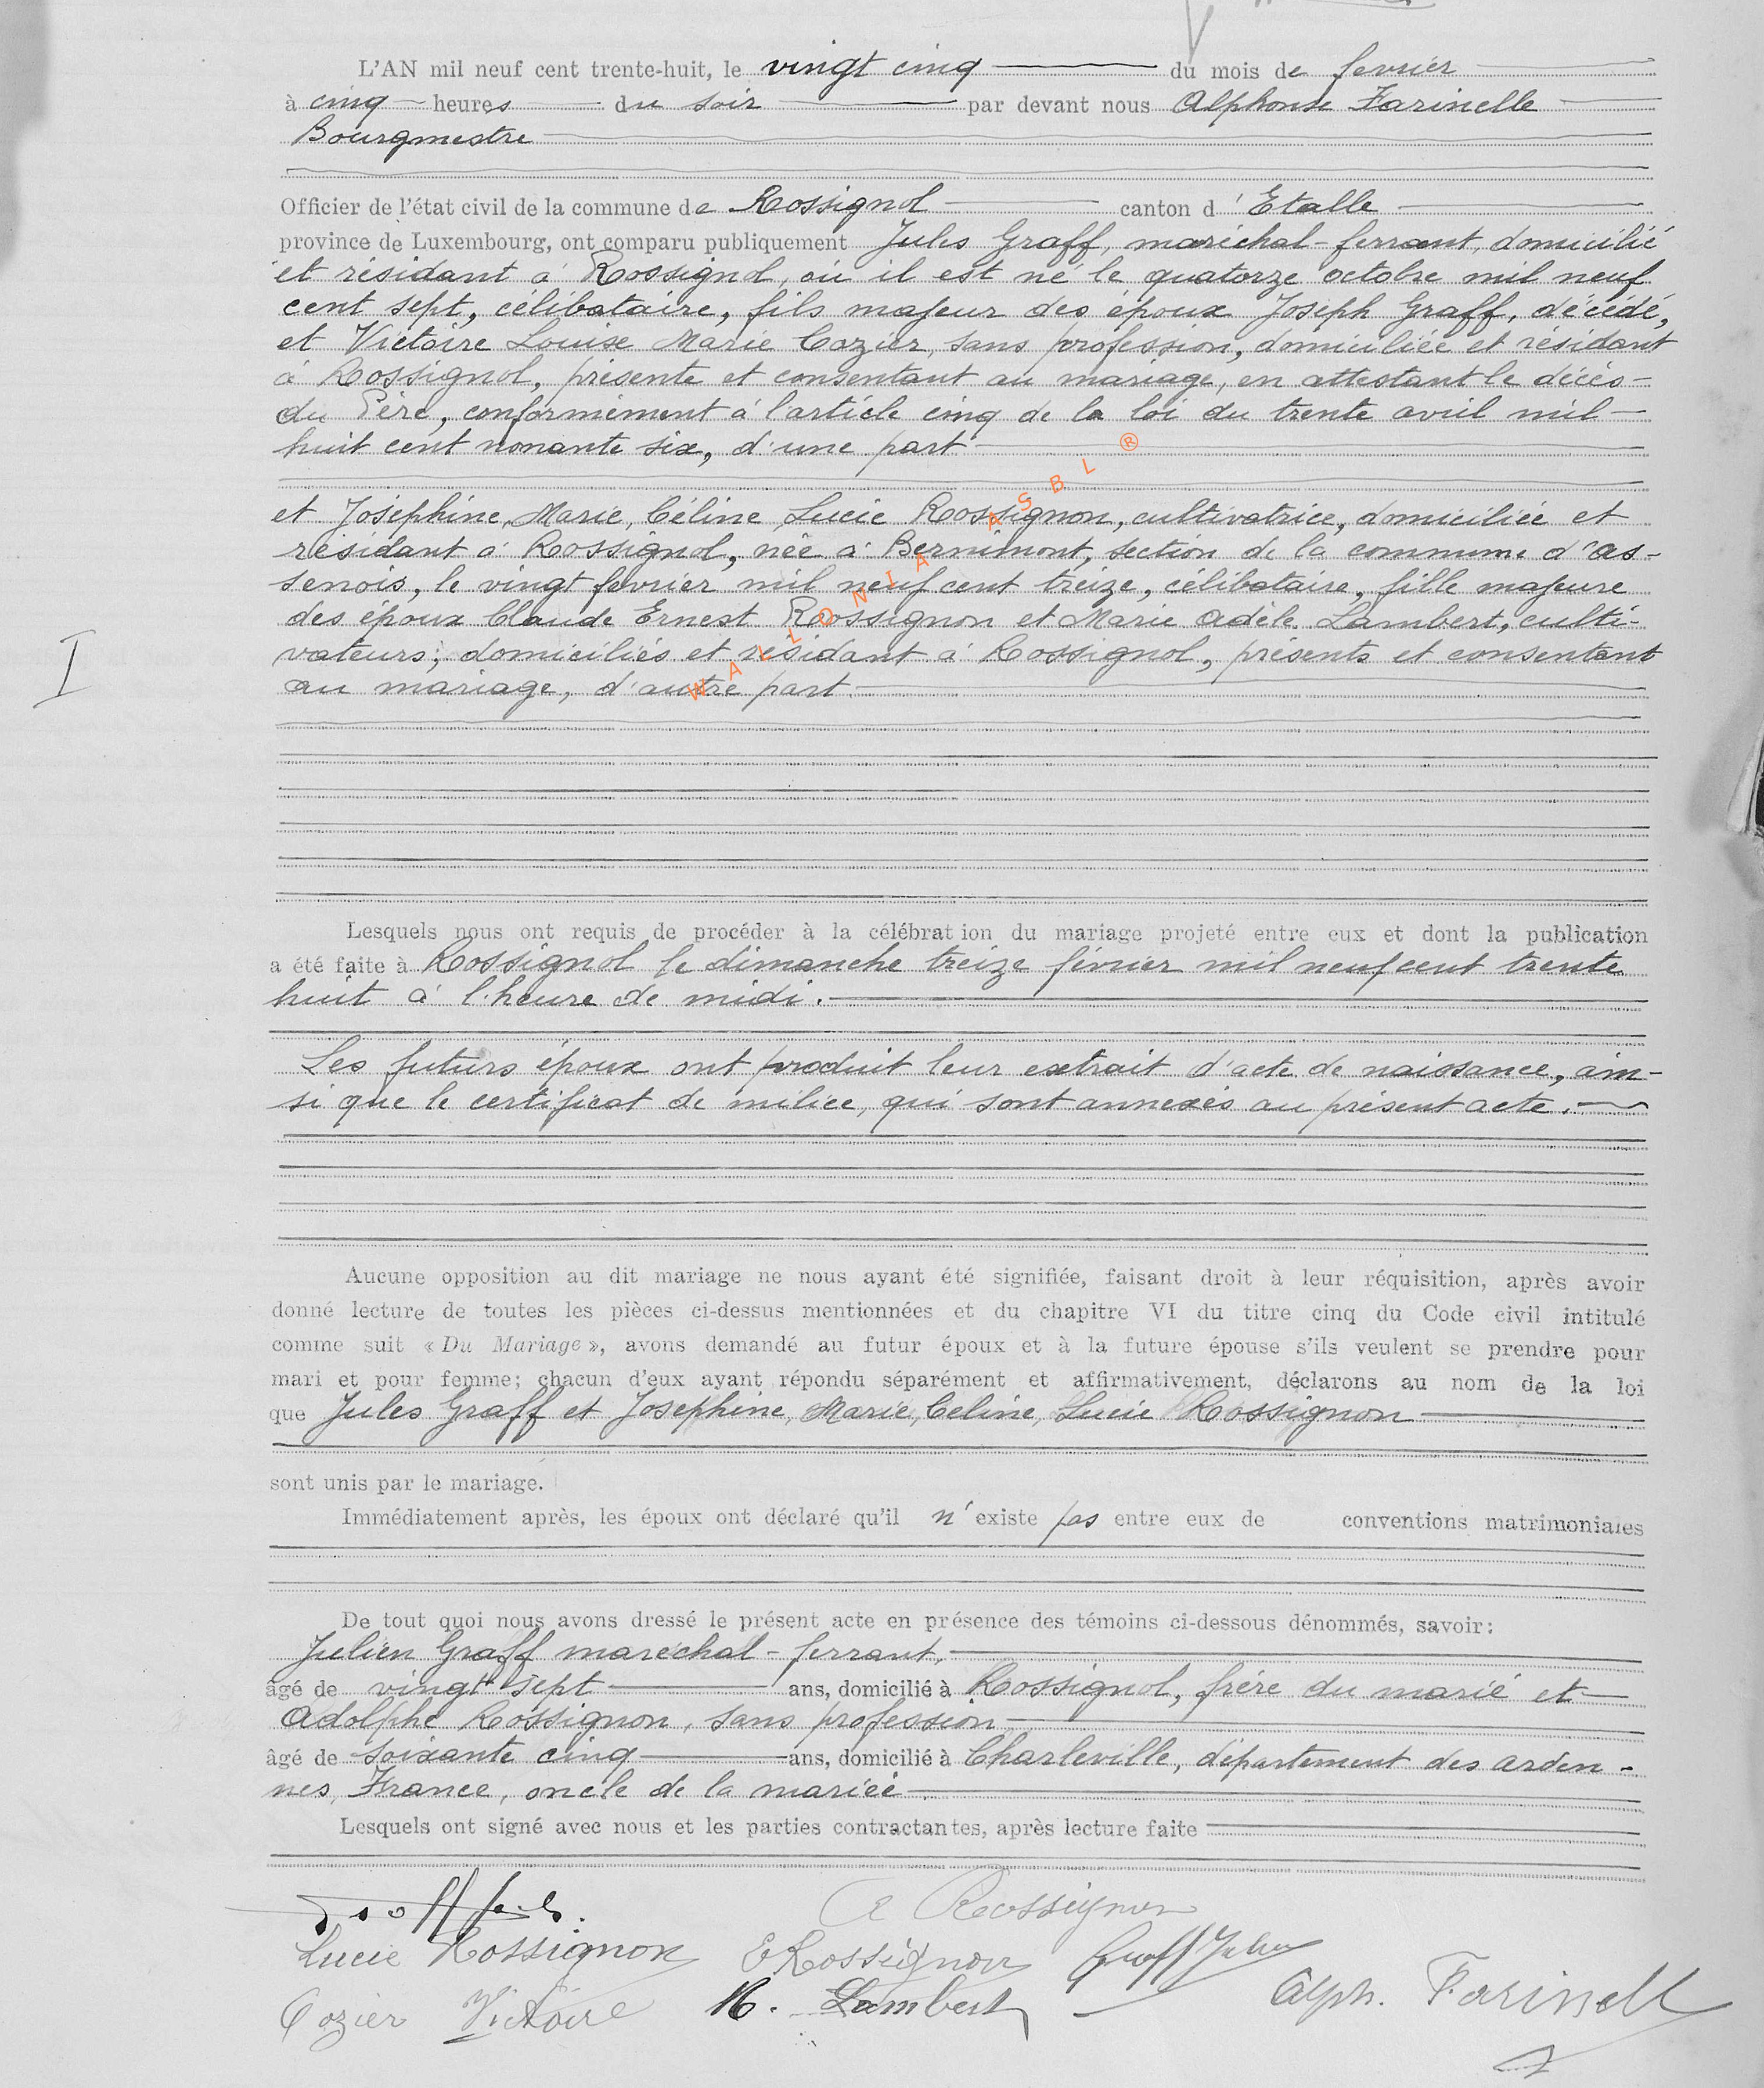 L'AN mil neuf cent trente-huit, le vingt cinq du mois de fevrier
à cinq heures du soir par devant nous Alphonse Farinelle
Bourgmestre
Officier de l'état civil de la commune de Rossignol canton d'Etalle
province de Luxembourg, ont comparu publiquement Jules Graff, maréchal-ferrant, domicilié
et résidant à Rossignol, où il est né le quatorze octobre mil neuf
cent sept, célibataire, fils majeur des époux Joseph Graff, décédé,
et Victoire Louise Marie Cozier, sans profession, domiciliée et résidant
à Rossignol, présente et consentant au mariage, en attestant le décès
du Père, conformément à l'article cinq de la loi du trente avril mil
huit cent nonante six, d'une part
et Joséphine, Marie, Céline Lucie Rossignon, cultivatrice, domiciliée et
résidant à Rossignol, née à Bernimont, section de la commune d'As-
senois, le vingt fevrier mil neuf cent treize, célibataire, fille majeure
des époux Claude Ernest Rossignon et Marie Adèle Lambert, culti-
vateurs, domiciliés et résidant à Rossignol, présents et consentant
au mariage, d'autre part.
WALLONIA ASBL ®
I
Lesquels nous ont requis de procéder à la célébration du mariage projeté entre eux et dont la publication
a été faite à Rossignol le dimanche treize février mil neuf cent trente
huit à l'heure de midi.
Les futurs époux ont produit leur extrait d'acte de naissance, ain-
si que le certificat de milice, qui sont annexés au présent acte.
Aucune opposition au dit mariage ne nous ayant été signifiée, faisant droit à leur réquisition, après avoir
donné lecture de toutes les pièces ci-dessus mentionnées et du chapitre VI du titre cinq du Code civil intitulé
comme suit « Du Mariage », avons demandé au futur époux et à la future épouse s'ils veulent se prendre pour
mari et pour femme; chacun d'eux ayant répondu séparément et affirmativement, déclarons au nom de la loi
que Jules Graff et Josephine, Marie, Celine, Lucie Rossignon
sont unis par le mariage.
Immédiatement après, les époux ont déclaré qu'il n'existe pas entre eux de conventions matrimoniales
De tout quoi nous avons dressé le présent acte en présence des témoins ci-dessous dénommés, savoir:
Julien Graff maréchal-ferrant,
âgé de vingt sept ans, domicilié à Rossignol, frère du marié et
Adolphe Rossignon, sans profession
âgé de soixante cinq ans, domicilié à Charleville, département des Arden-
nes, France, oncle de la mariée
Lesquels ont signé avec nous et les parties contractantes, après lecture faite
A Rossignon
Lucie Rossignon E Rossignon Graff Julien
Cozier Victoire M. Lambert Alph. Farinell